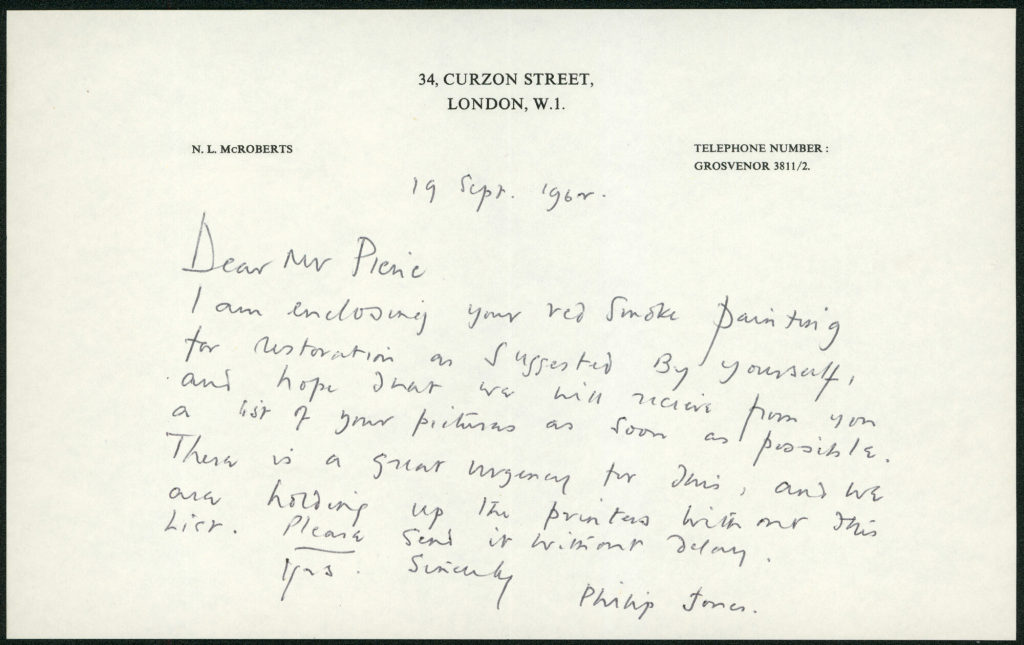 34, CURZON STREET,
LONDON, W.1.
N. L. McROBERTS
TELEPHONE NUMBER :
GROSVENOR 3811/2.
19 Sept. 1962.
Dear Mr Piene
I am enclosing your red smoke painting
for restoration as suggested By yourself,
and hope that we will recieve from you
a list of your pictures as soon as possible.
There is a great urgency for this, and we
are holding up the printers without this
List. Please send it without delay.
Yrs. Sincerely
Philip Jones.